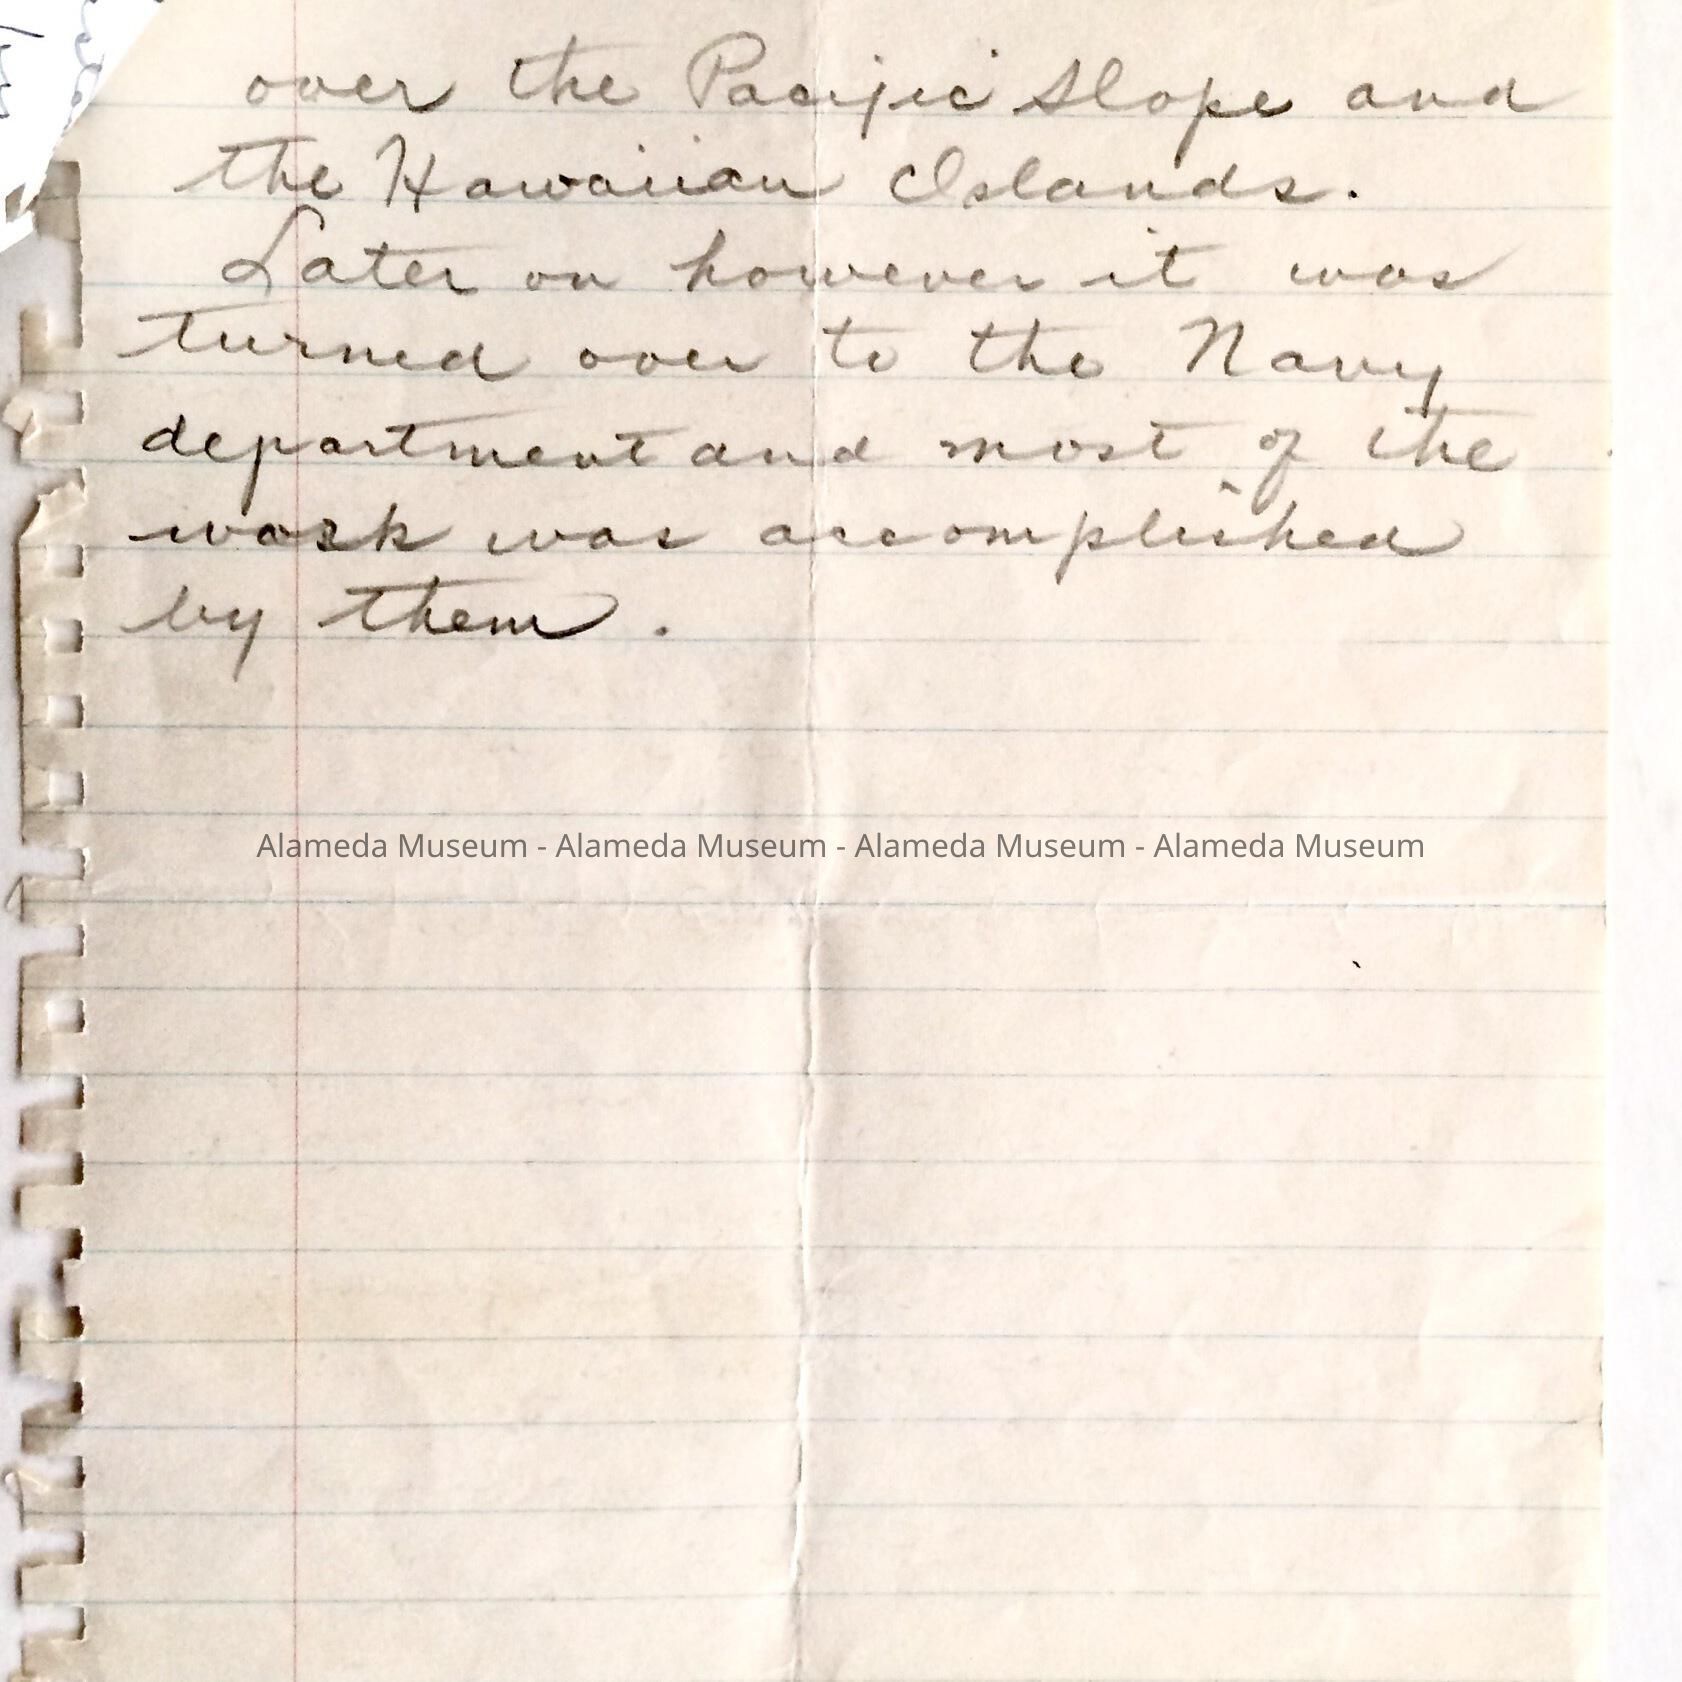 over the Pacific Slope and
the Hawaiian Islands.
Later on however it was
turned over to the Navy
department and most of the
work was accomplished
by them.
Alameda Museum - Alameda Museum - Alameda Museum - Alameda Museum